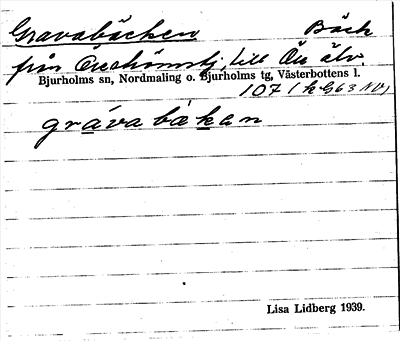 Gravabäcken Bäck
från till älv.
Bjurholms sn, Nordmaling o. Bjurholms tg, Västerbottens l.
107 (kG63NV)
gráva bakan
Lisa Lidberg 1939.